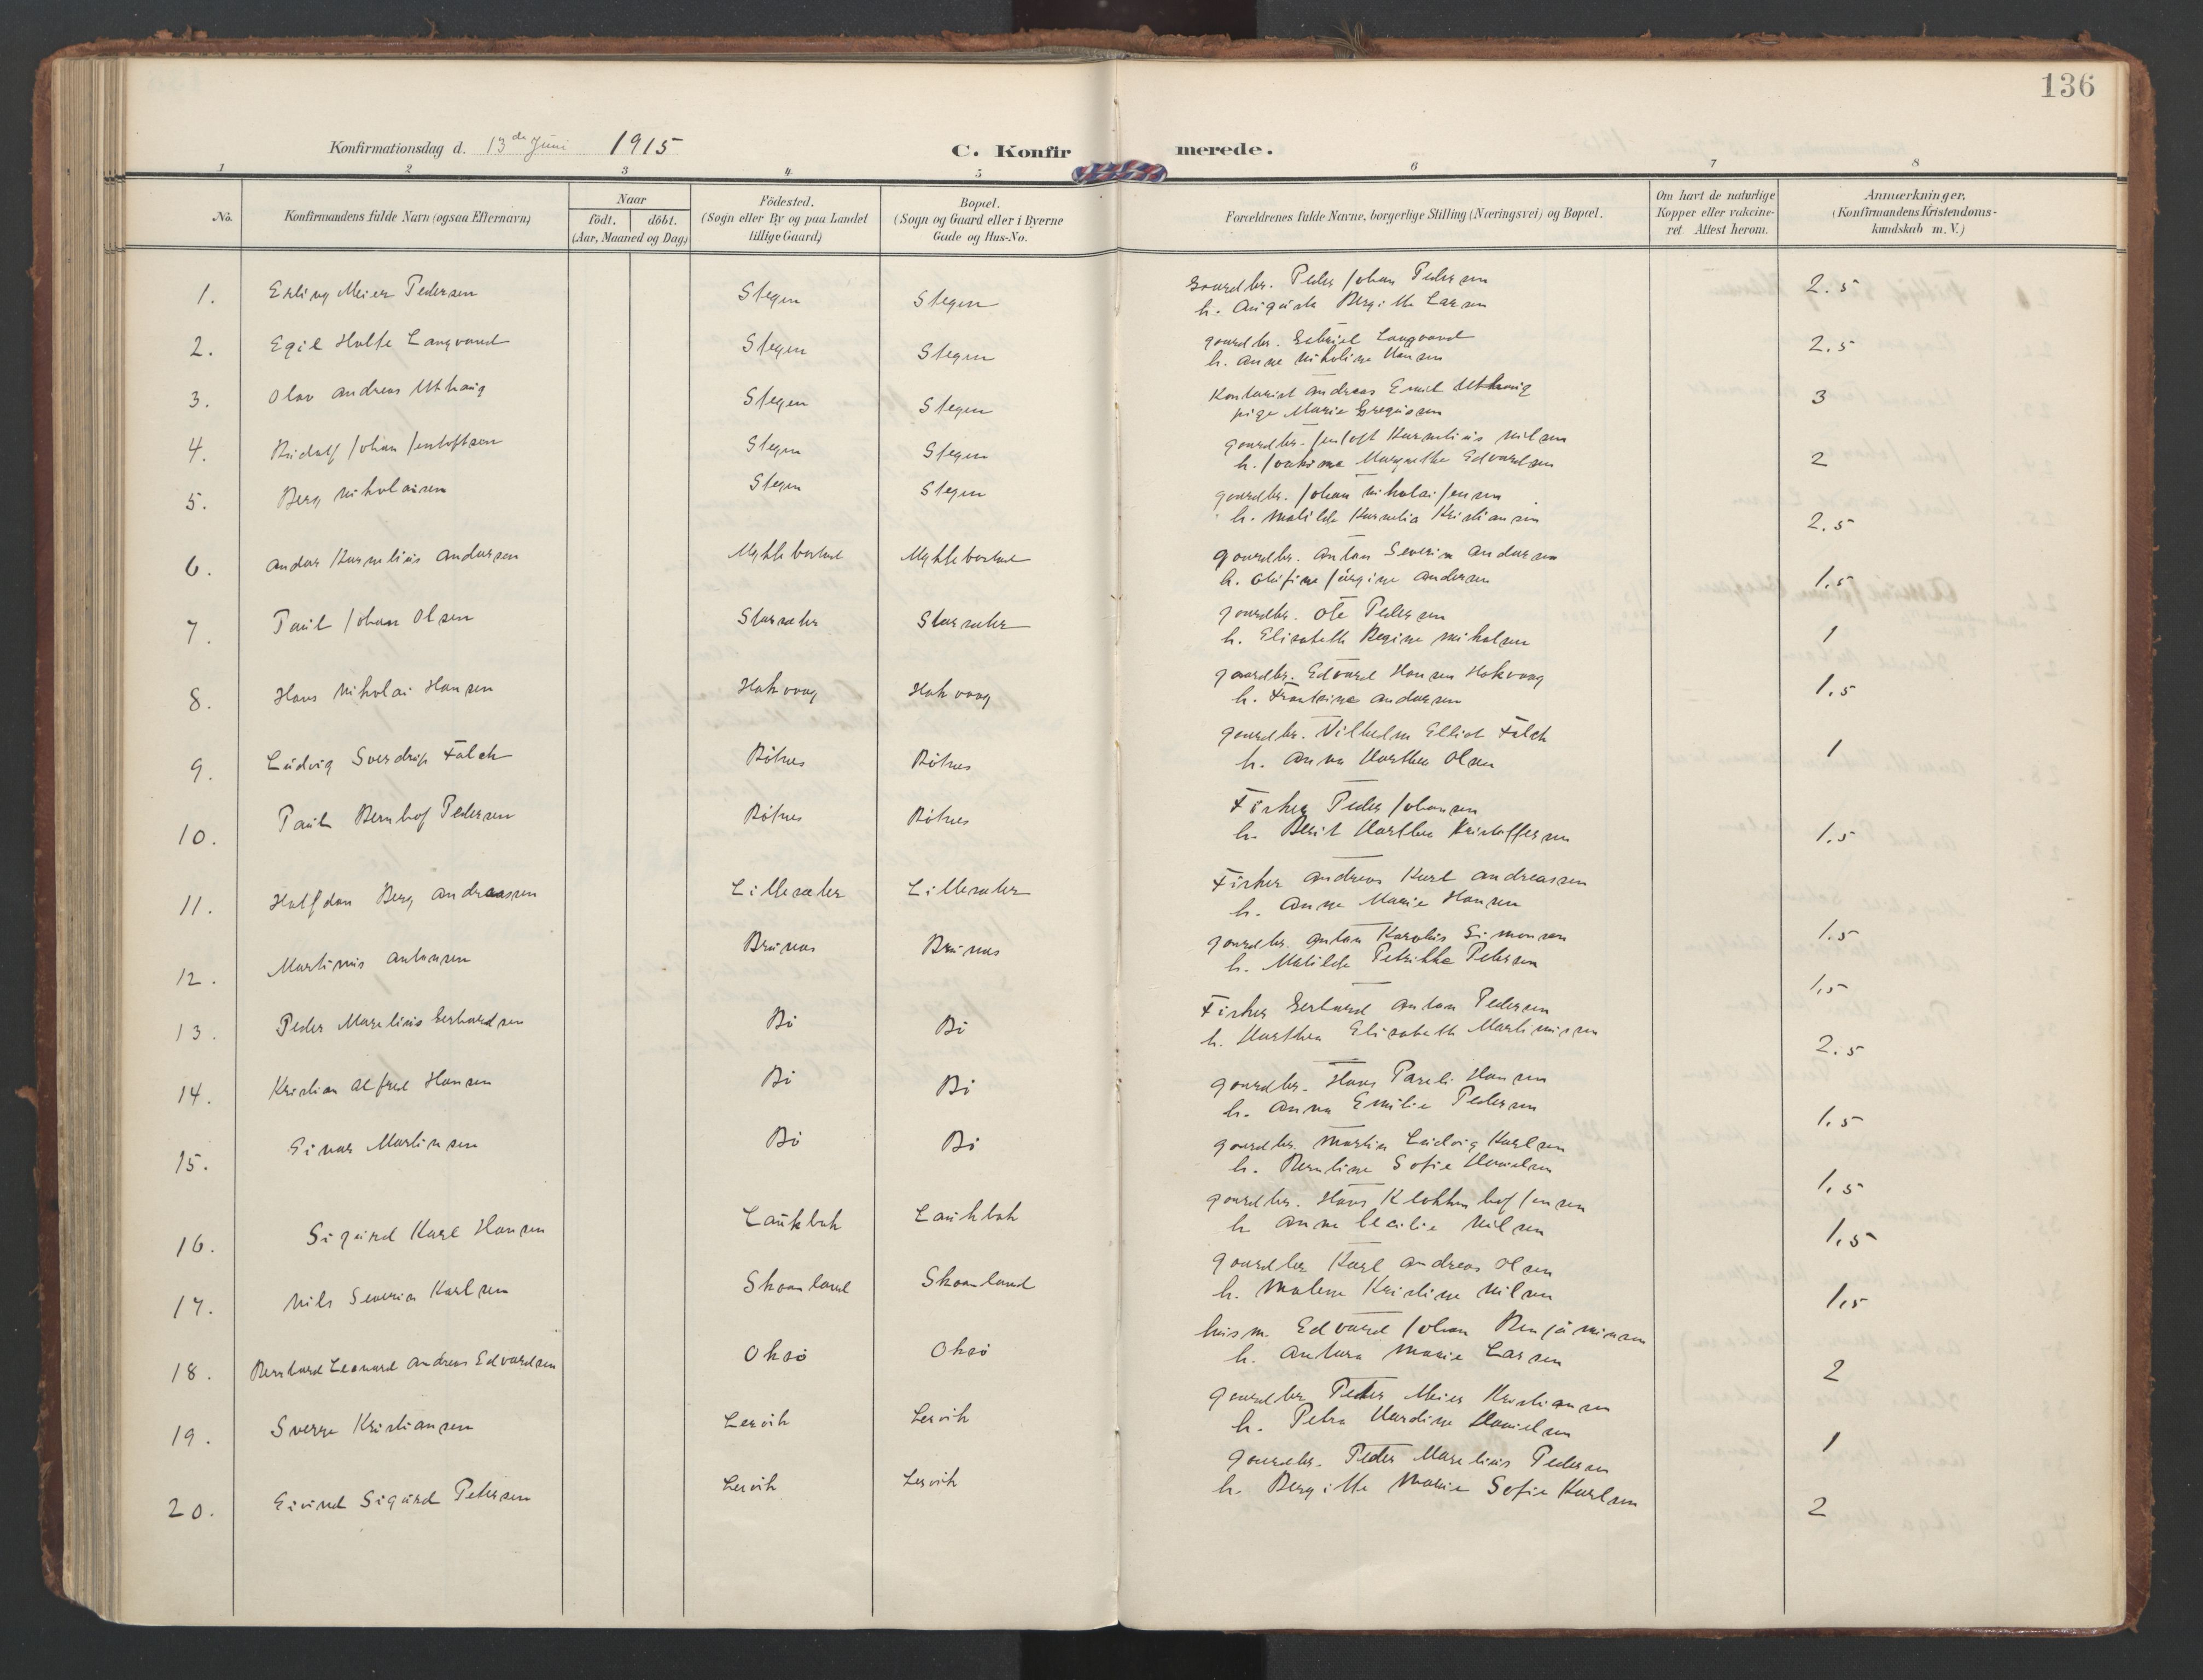 136
Konfirmationsdag d. 13de Juni 1915
C. Konfirmerede.
1 2 3 4 5 6 7 8
No. Konfirmandens fulde Navn (ogsaa Efternavn) Naar födt. döbt. (Aar, Maaned og Dag) Födested. (Sogn eller By og paa Landet tillige Gaard) Bopæl. (Sogn og Gaard eller i Byerne Gade og Hus-No. Forældrenes fulde Navne, borgerlige Stilling (Næringsvei) og Bopæl. Om havt de naturlige Kopper eller vakcineret. Attest herom. Anmærkninger, (Konfirmandens Kristendomskundskab m. V.)
1. Erling Meier Pedersen Stegen Stegen Gaardbr. Peder Johan Pedersen 2.5
h. Augusta Bergitte Larsen
2. Egil Holte Langvand Stegen Stegen gaardbr. Gabriel Langvand 2.5
h. Anne Nikoline Hansen
3. Olav Andreas Uthaug Stegen Stegen Kontorist Andreas Emil Uthaug 3
pige Marie Gregusen
4. Rudolf Johan Jentoftsen Stegen Stegen gaardbr. Jentoft Kornelius Nilsen 2
h. Joakime Margrethe Edvardsen
5. Berg Nikolaisen Stegen Stegen gaardbr. Johan Nikolai Jensen 2.5
h. Matilde Kornelia Kristiansen
6. Andor Kornelius Andersen Myklebostad Myklebostad gaardbr. Anton Severin Andersen 1.5
h. Olufine Jørgine Andersen
7. Paul Johan Olsen Storsæter Storsæter gaardbr. Ole Pedersen 1
h. Elisabeth Regine Mikalsen
8. Hans Nikolai Hansen Hakvaag Hakvaag gaardbr. Edvard Hansen Hakvaag 1.5
h. Frantsine Andersen
9. Ludvig Sverdrup Falch Bötnes Bötnes gaardbr. Vilhelm Elliot Falch 1
h. Anna Marthea Olsen
10. Paul Bernhof Pedersen Bötnes Bötnes Fisker Peder Johansen 1.5
h. Berit Marthea Kristoffersen
11. Halfdan Berg Andreassen Lillesæter Lillesæter Fisker Andreas Karl Andreassen 1.5
h. Anne Marie Hansen
12. Martinus Antonsen Brunes Brunes gaardbr. Anton Karolius Simonsen 1,5
h. Matilde Petrikke Petersen
13. Peder Marelius Gerhardsen Bö Bö Fisker Gerhard Anton Pedersen 2.5
h. Marthea Elisabeth Martinussen
14. Kristian Alfred Hansen Bö Bö gaardbr. Hans Pareli Hansen 1.5
h. Anna Emilie Pedersen
15. Einar Martinsen Bö Bö gaardbr. Martin Ludvig Karlsen 1.5
h. Berntine Sofie Danielsen
16. Sigurd Karl Hansen Laukbak Laukbak gaardbr. Hans Klokkerhof Jensen 1.5
h Anne Cecilie Nilsen
17. Nils Severin Karlsen Skaanland Skaanland gaardbr Karl Andreas Olsen 1,5
h. Malene Kristine Nilsen
18. Bernhard Leonard Andreas Edvardsen Oksö Oksö husm. Edvard Johan Benjaminsen 2
h. Antora Marie Larsen
19. Sverre Kristiansen Lervik Lervik gaardbr Peder Meier Kristiansen 1
h. Petra Nardine Danielsen
20. Eivind Sigurd Petersen Lervik Lervik gaardbr. Peder Marelius Pedersen 2
h. Bergitte Marie Sofie Karlsen